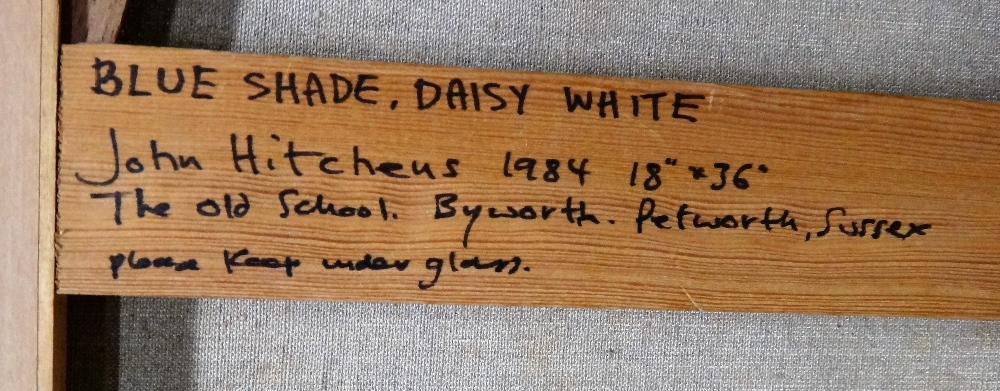 BLUE SHADE, DAISY WHITE
John Hitchens 1984 18" x 36"
The old School. Byworth. Petworth, Sussex
please Keep under glass.